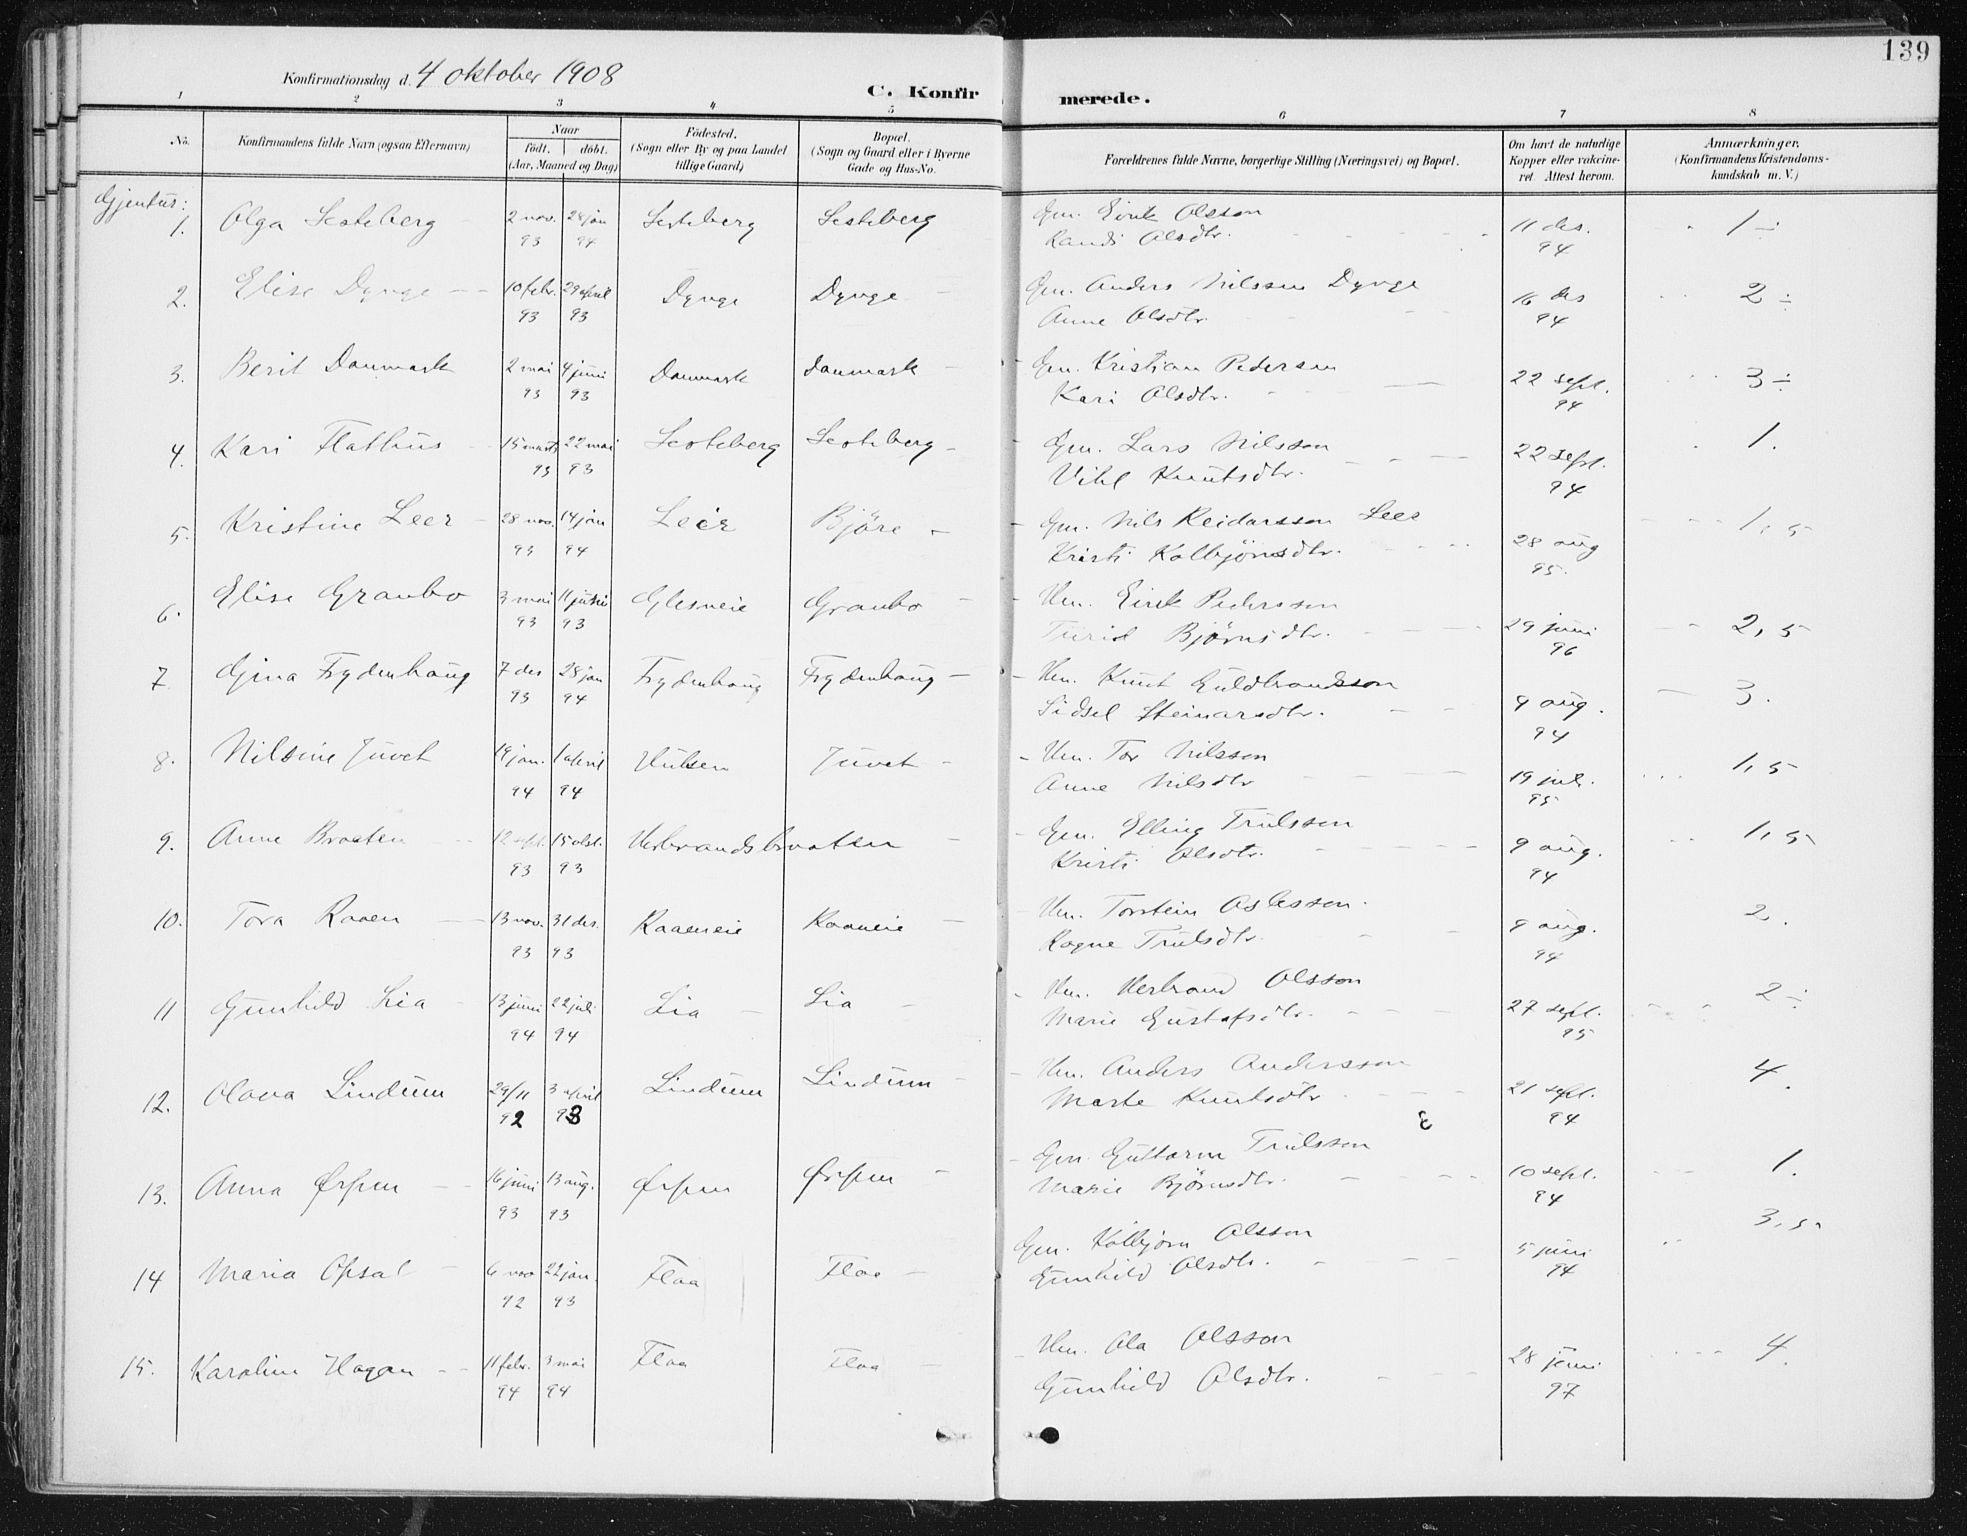 139
Konfirmationsdag d. 4 oktober 1908
C. Konfirmerede.
1 2 3 4 5 6 7 8
No. | Konfirmandens fulde Navn (ogsaa Efternavn) | Naar født. døbt. (Aar, Maaned og Dag) | Fødested. (Sogn eller By og paa Landet tillige Gaard) | Bopæl. (Sogn og Gaard eller i Byerne Gade og Hus-No. | Forældrenes fulde Navne, borgerlige Stilling (Næringsvei) og Bopæl. | Om havt de naturlige Kopper eller vakcineret. Attest herom. | Anmærkninger. (Konfirmandens Kristendomskundskab m. V.)
Gjentur:
1. Olga Sesteberg 2 nov. 93 28 jan 94 Sesteberg Sesteberg Gm. Eirik Olsson 11 des. 94 1 ÷
Randi Olsdtr.
2. Elise Dynge 10 febr. 93 29 april 93 Dynge Dynge Gm. Anders Nilssen Dynge 16 des 94 2 ÷
Anne Olsdtr.
3. Berit Danmark 2 mai 93 4 juni 93 Danmark Danmark Gm. Kristian Pedersen 22 sept. 94 3 ÷
Kari Olsdtr.
4. Kari Flathus 15 marts 93 22 mai 93 Sesteberg Sesteberg Gm. Lars Nilsson 22 sept. 94 1.
Knutsdtr.
5. Kristine Leer 28 nov. 93 14 jan 94 Leer Bjøre Gm. Nils Reidarsson Leer 28 aug 95. 1,5
Kristi Kolbjørnsdtr.
6. Elise Granbo 3 mai 93 11 juni 93 Glesneie Granbo Hm. Eirik Pedersson 29 juni 96 2,5
Turid Bjørnsdtr.
7. Gina Frydenhaug 7 des 93 28 jan 94 Frydenhaug Frydenhaug Hm. Knut Guldbrandsson 9 aug. 94 3.
Sidsel Steinarsdtr.
8. Nilsine Juvet 19 jan. 94 1 april 94 Juvet Hm. Tor Nilsson 19 jul. 95 1,5
Anne Nilsdtr
9. Anne Braaten 12 sept. 93 15 okt. 93 Herbrandsbraaten Gm. Elling Trulsson 9 aug. 94 1,5
Kristi Olsdtr.
10. Tora Raaen 13 nov. 93 31 des. 93 Raaeneie Raaneie Hm. Torstein Aslesson. 9 aug. 94 2.
Ragne Trulsdtr.
11 Gunhild Lia 13 juni 94 22 jul. 94 Lia Lia Hm. Herbrand Olsson 27 sept. 95 2 ÷
Marie Gustafsdtr.
12. Olava Lindum 29/11 92 3 april 93 Lindum Lindum Hm. Anders Andersson 21 sept. 94 4.
Marte Knutsdtr
13. Anna Ørpen 16 juni 93 13 aug. 93 Ørpen Ørpen Gm. Guttorm Trulsson 10 sept. 94 1.
Marie Bjørnsdtr.
14 Maria Opsal 6 nov 92 22 jan. 93 Flaa Flaa Gm. Kolbjørn Olsson 5 juni 94 3,5
Gunhild Olsdtr.
15. Karoline Hagan 11 febr. 94 3 mai 94 Flaa Flaa Hm. Ola Olsson 28 juni 97 4.
Gunhild Olsdtr.